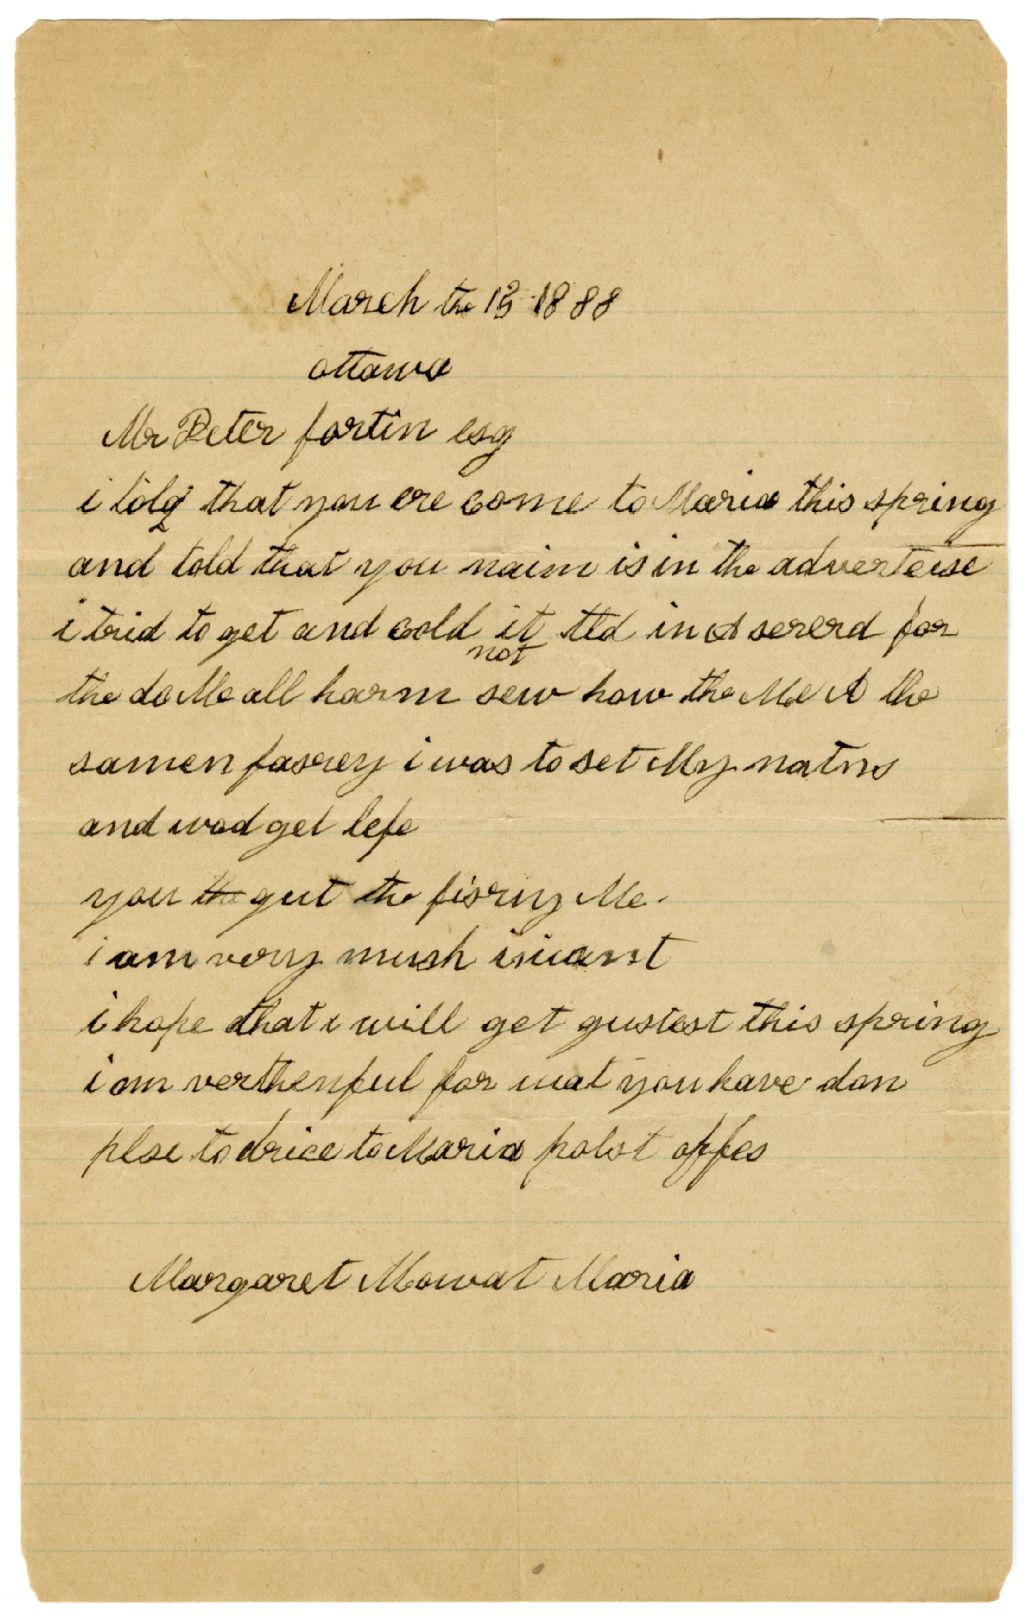 March the 13 1888
ottawa
Mr Peter fortin esq
i told that you ere come to Maria this spring
and told that you naim is in the adverteise
i trid to get and cold it ttd in A sererd for
not
the do Me all harm sew how the Me A the
samen fasrey i was to set My natns
and wod get lefe
you the gut the fisrny Me.
i am very mush iniant
i hope that i will get gustest this spring
i am verthenful for wat you have don
plse to drice to Maria polst offes
Margaret Mowat Maria